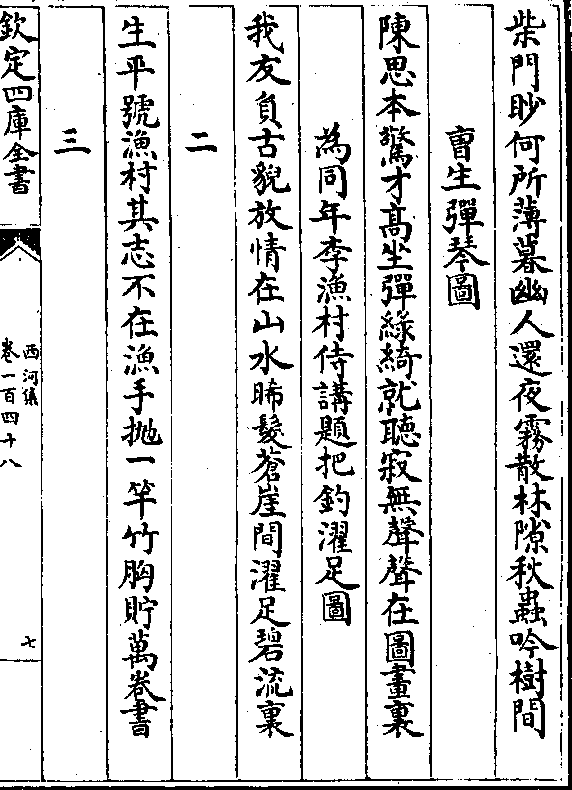 柴門眇何所薄暮幽人還夜霧散林隙秋蟲吟樹間
曹生彈琴圖
陳思本驚才髙坐彈緑綺就聽寂無聲聲在圖畫裏
為同年李漁村侍講題把釣濯足圖
我友負古貌放情在山水晞髮蒼崖間濯足碧流裏
二
生平號漁村其志不在漁手抛一竿竹胸貯萬卷書
三
欽定四庫全書
西河集
卷一百四十八
七